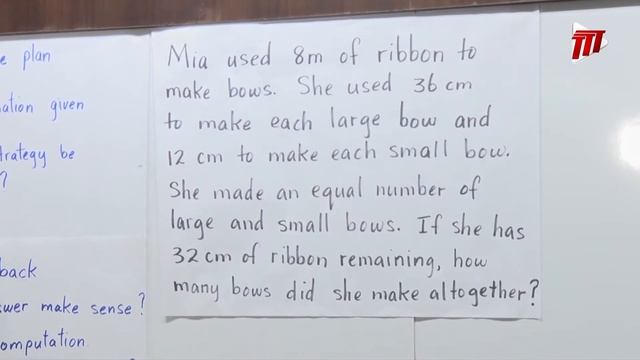 e plan
ation given
trategy be
?
back
swer make sense?
omputation
Mia used 8m of ribbon to
make bows. She used 36 cm
to make each large bow and
12 cm to make each small bow.
She made an equal number of
large and small bows. If she has
32 cm of ribbon remaining, how
many bows did she make altogether?